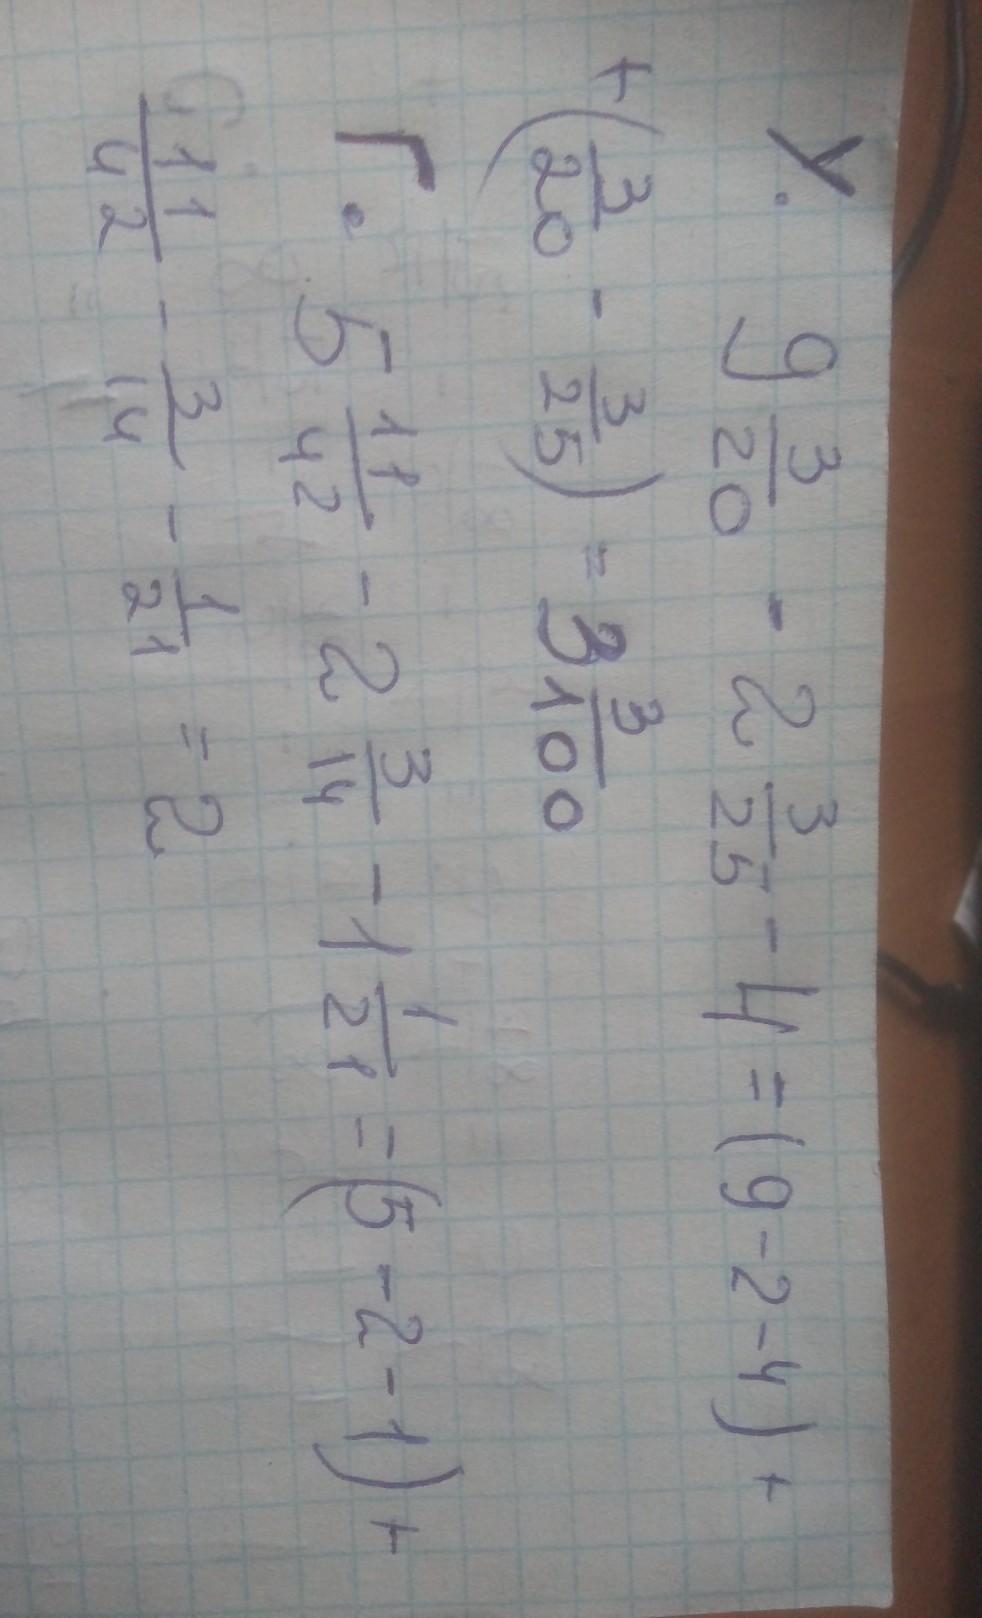 У. 9 3/20 - 2 3/25 - 4 = (9 - 2 - 4) +
+ (3/20 - 3/25) = 3 3/100
Г. 5 11/42 - 2 3/14 - 1 1/21 = (5 - 2 - 1) +
11/42 - 3/14 - 1/21 = 2